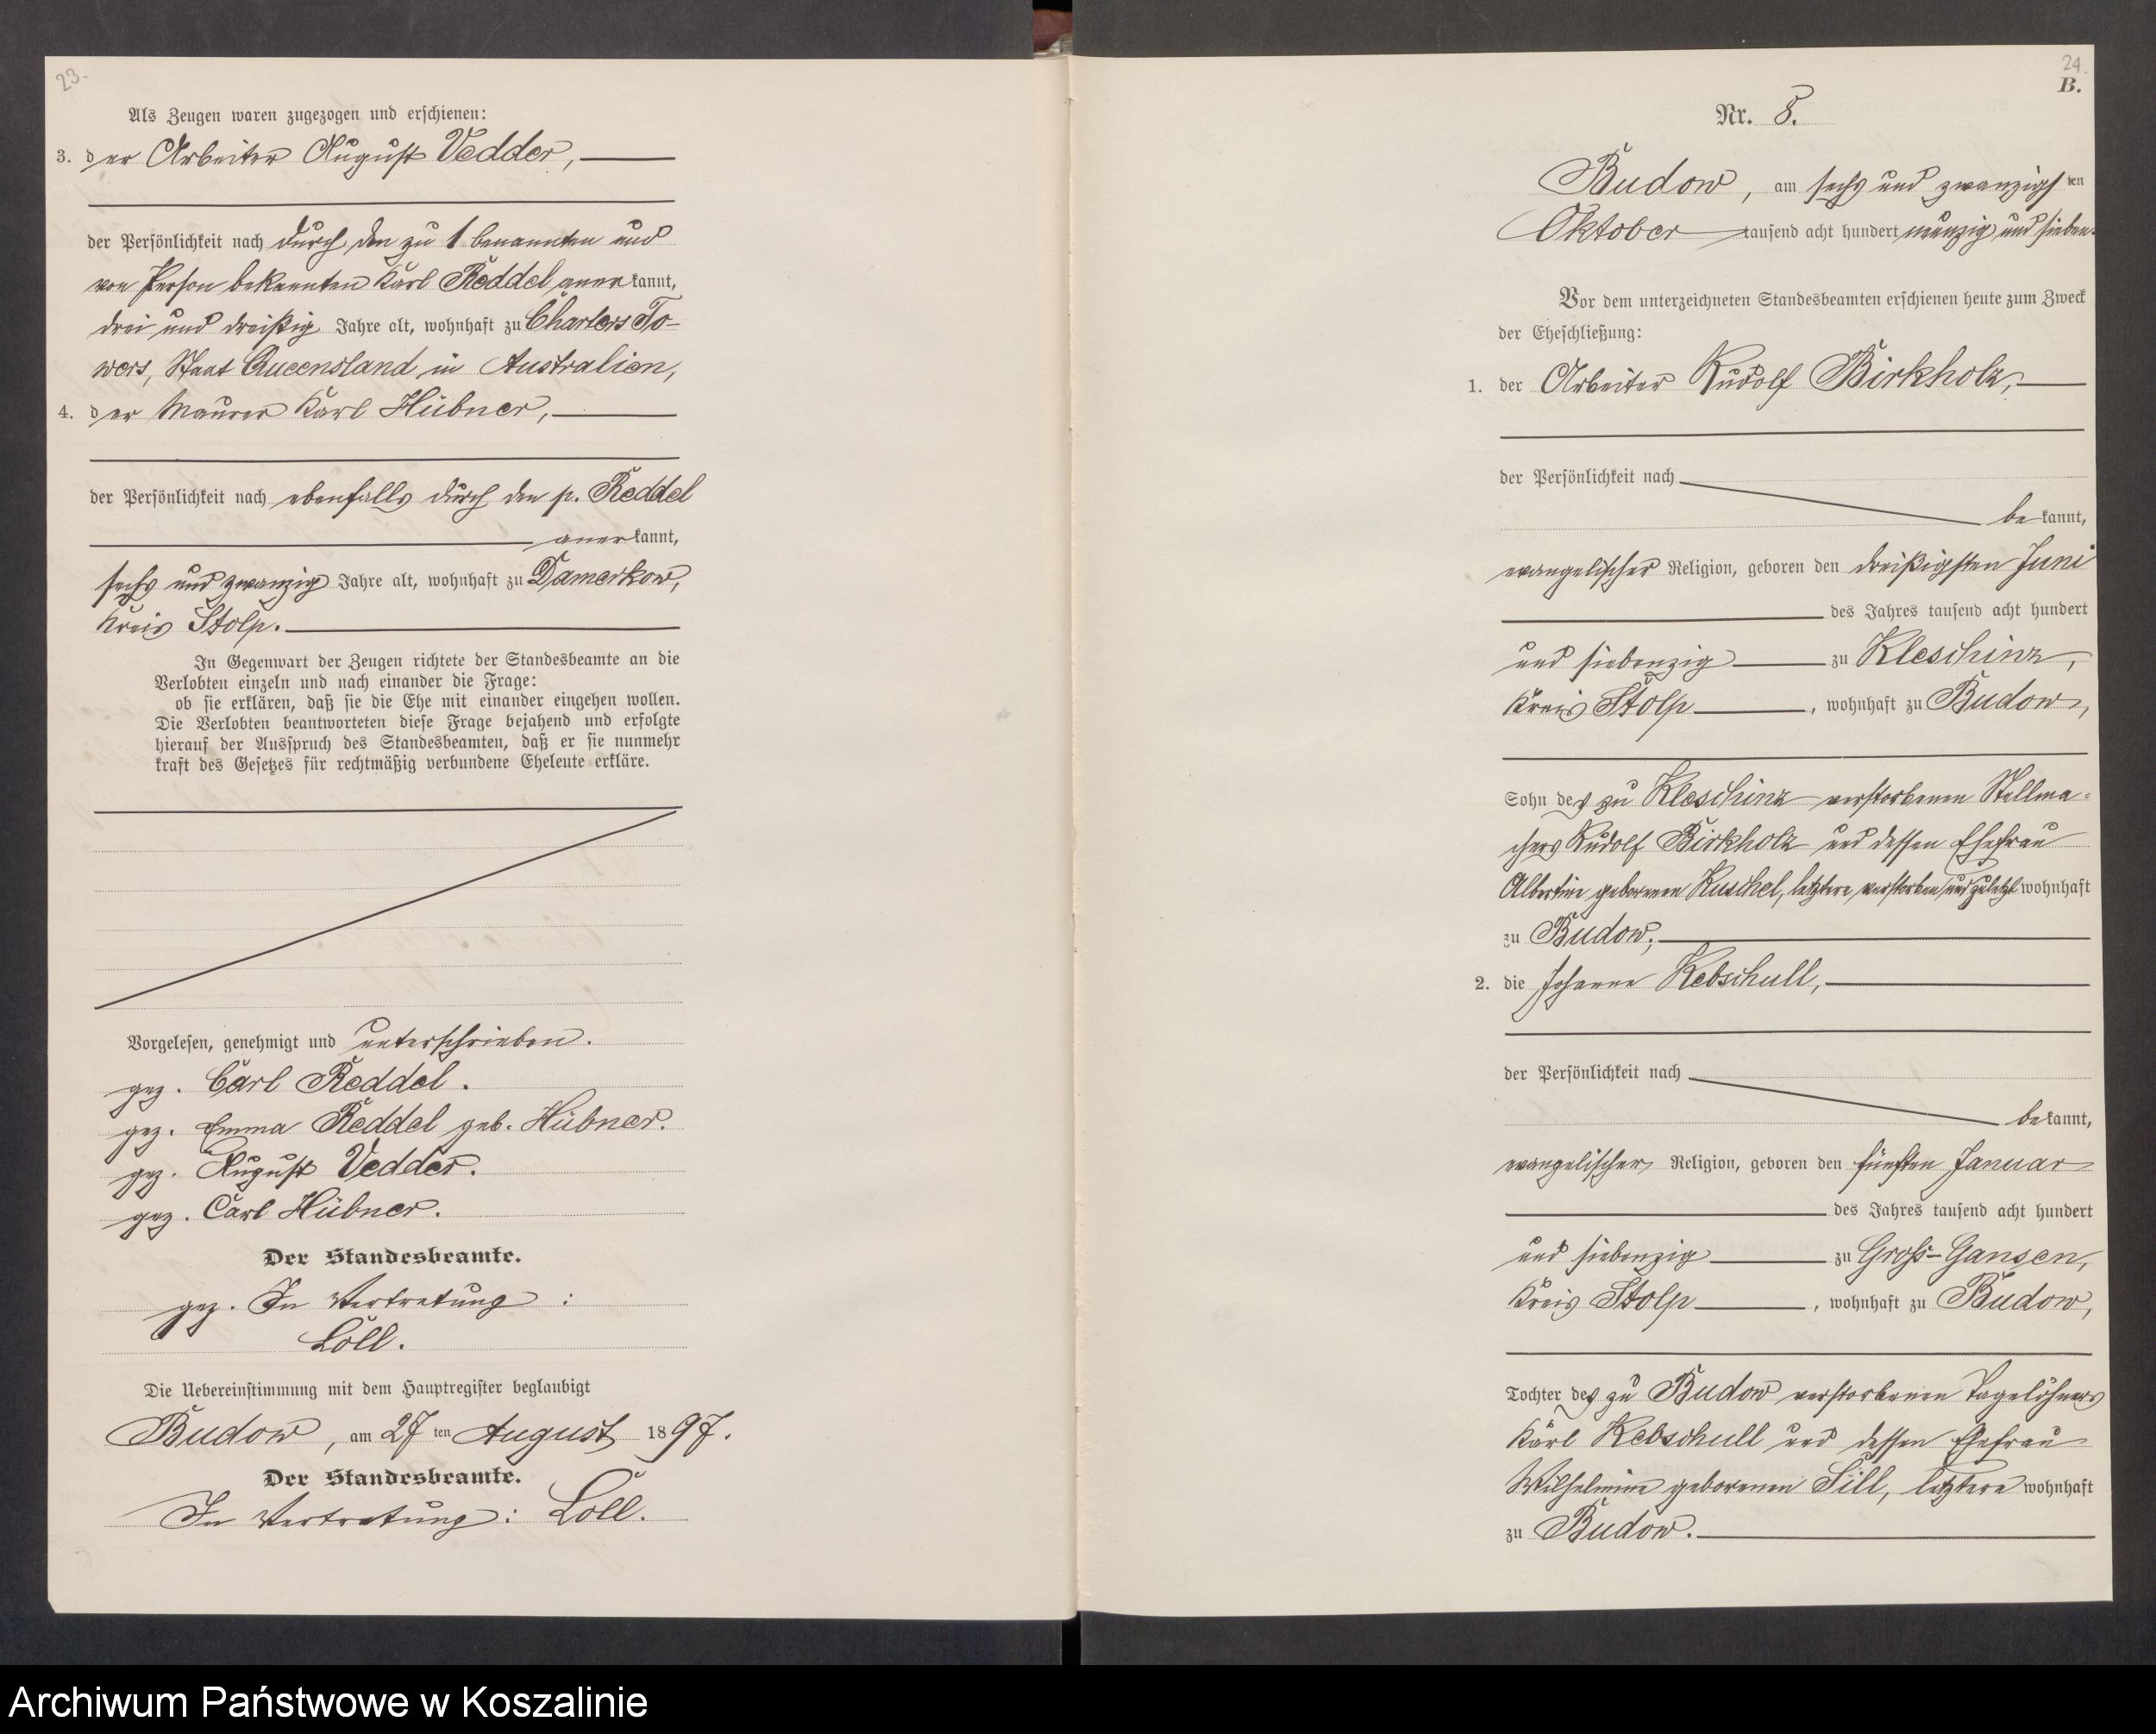 23.
Als Zeugen waren zugezogen und erschienen:
3. der Arbeiter August Vedder,
der Persönlichkeit nach durch den zu 1 benannten und
von Person bekannten Karl Reddel anerkannt,
drei und dreißig Jahre alt, wohnhaft zu Charters To-
wers, Staat Queensland in Australien,
4. der Maurer Karl Hübner,
der Persönlichkeit nach ebenfalls durch den p. Reddel
anerkannt,
sechs und zwanzig Jahre alt, wohnhaft zu Damerkow,
Kreis Stolp.
In Gegenwart der Zeugen richtete der Standesbeamte an die
Verlobten einzeln und nach einander die Frage:
ob sie erklären, daß sie die Ehe mit einander eingehen wollen.
Die Verlobten beantworteten diese Frage bejahend und erfolgte
hierauf der Ausspruch des Standesbeamten, daß er sie nunmehr
kraft des Gesetzes für rechtmäßig verbundene Eheleute erkläre.
Vorgelesen, genehmigt und unterschrieben.
gez. Carl Reddel.
gez. Emma Reddel geb. Hübner.
gez. August Vedder.
gez. Carl Hübner.
Der Standesbeamte.
gez. In Vertretung:
Löll.
Die Uebereinstimmung mit dem Hauptregister beglaubigt
Budow, am 27ten August 1897.
Der Standesbeamte.
In Vertretung: Löll.
24.
B.
Nr. 8.
Budow, am sechs und zwanzigsten
Oktober tausend acht hundert neunzig und sieben.
Vor dem unterzeichneten Standesbeamten erschienen heute zum Zweck
der Eheschließung:
1. der Arbeiter Rudolf Birkholz,
der Persönlichkeit nach
bekannt,
evangelischer Religion, geboren den dreißigsten Juni
des Jahres tausend acht hundert
und siebenzig zu Kleschinz,
Kreis Stolp, wohnhaft zu Budow,
Sohn des zu Kleschinz verstorbenen Stellma-
chers Rudolf Birkholz und dessen Ehefrau
Albertine geborenen Kuschel, letztere verstorben und zuletzt wohnhaft
zu Budow;
2. die Johanne Kebschull,
der Persönlichkeit nach
bekannt,
evangelischer Religion, geboren den fünften Januar
des Jahres tausend acht hundert
und siebenzig zu Groß-Gansen,
Kreis Stolp, wohnhaft zu Budow,
Tochter des zu Budow verstorbenen Tagelöhners
Karl Kebschull und dessen Ehefrau
Wilhelmine geborenen Sill, letztere wohnhaft
zu Budow.
Archiwum Państwowe w Koszalinie